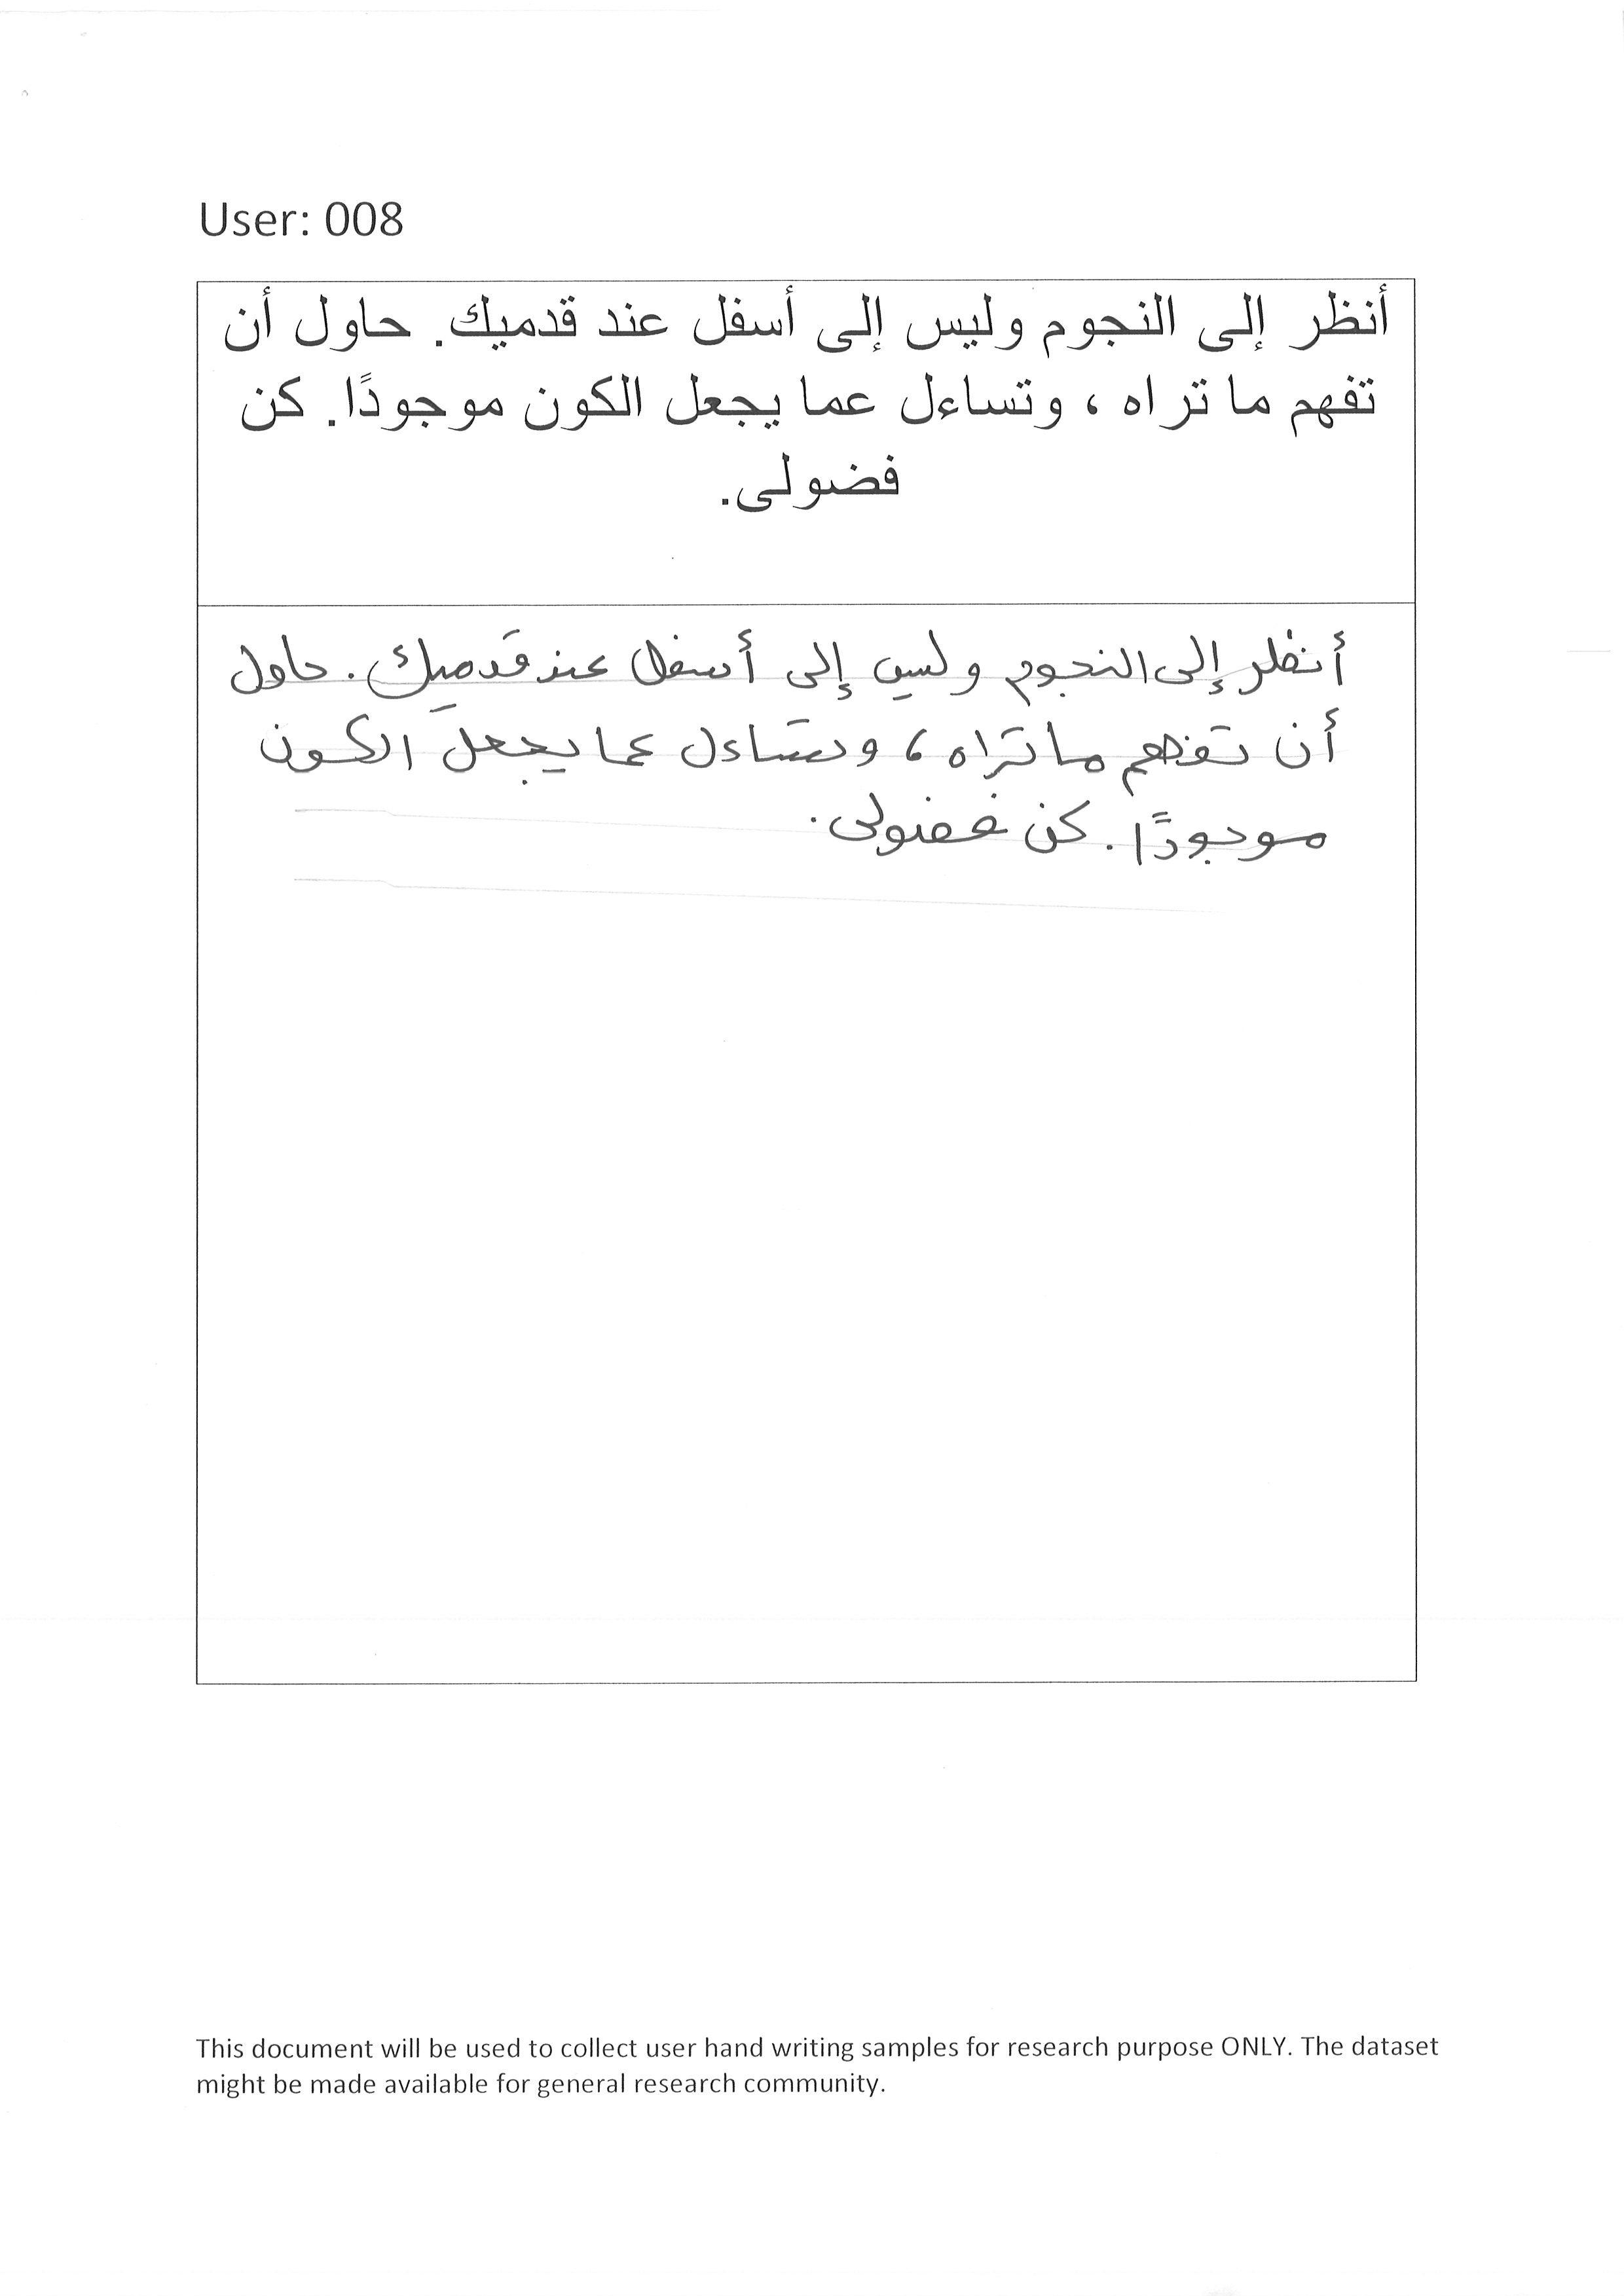 User: 008
أنظر إلى النجوم وليس إلى أسفل عند قدميك. حاول أن
تفهم ما تراه ، وتساءل عما يجعل الكون موجودًا. كن
فضولى.
أنظر إلى النجوم وليس إلى أسفل عند قدميك. حاول
أن تفهم ما تراه ، وتساءل عما يجعل الكون
موجودًا. كن فضولى.
This document will be used to collect user hand writing samples for research purpose ONLY. The dataset
might be made available for general research community.